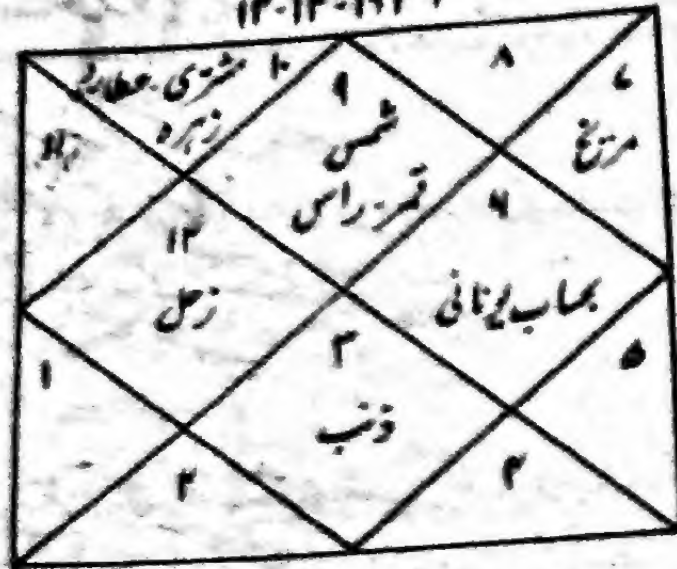 ۱۰ مشتری۔عطارد
زہرہ
۹
شمس
قمر۔راس
۸
۷
مریخ
۱۲
زحل
۶
بحساب یونانی
۱
۳
ذنب
۵
۲
۴